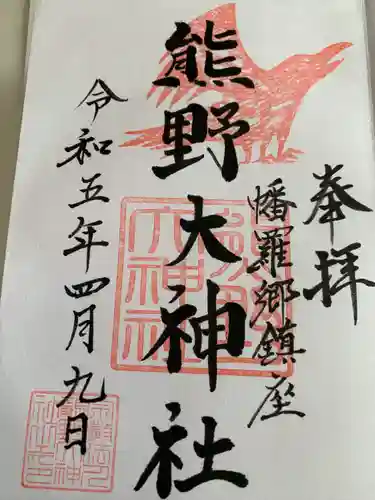 奉拝
幡羅郷鎮座
熊野大神社
令和五年四月九日